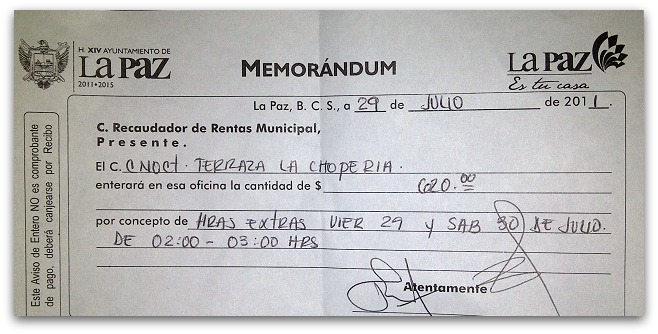 H. XIV AYUNTAMIENTO DE
LA PAZ
2011•2015
MEMORÁNDUM
LA PAZ
Es tu casa
La Paz, B. C. S., a 29 de JULIO de 2011.
C. Recaudador de Rentas Municipal,
P r e s e n t e .
El C. CNOCT. TERRAZA LA CHOPERIA.
enterará en esa oficina la cantidad de $ 620.00
por concepto de HRAS EXTRAS VIER 29 y SAB 30 DE JULIO.
DE 02:00 - 03:00 HRS
Atentamente
Este Aviso de Entero NO es comprobante
de pago, deberá canjearse por Recibo